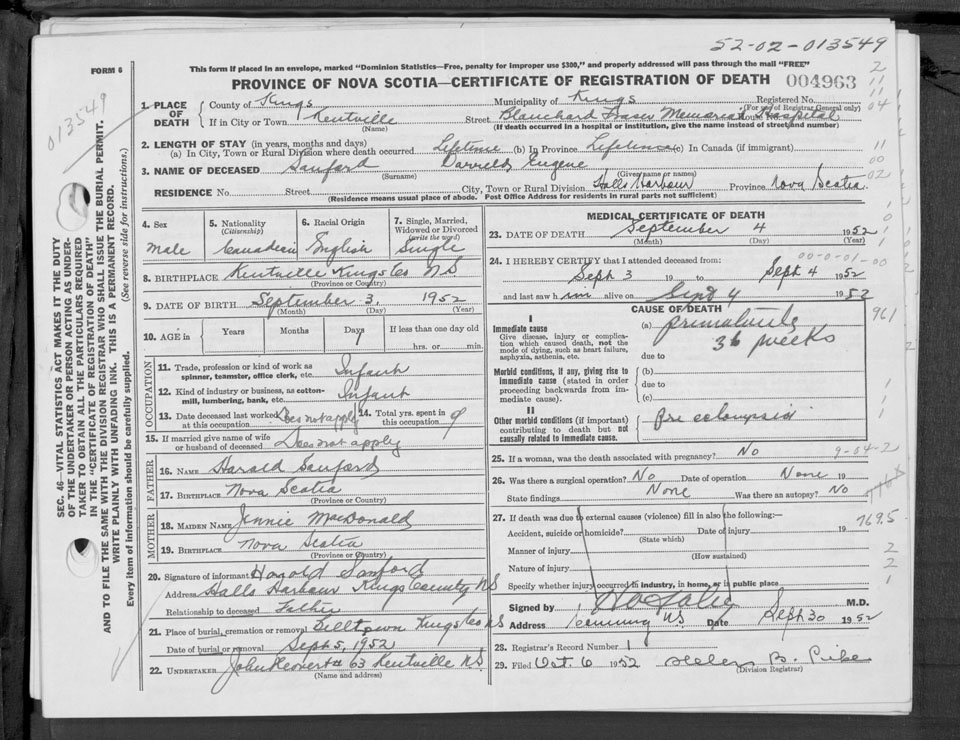 52-02-013549
FORM 6
This form if placed in an envelope, marked "Dominion Statistics—Free, penalty for improper use $300," and properly addressed will pass through the mail "FREE"
PROVINCE OF NOVA SCOTIA—CERTIFICATE OF REGISTRATION OF DEATH 004963
013549
SEC. 46—VITAL STATISTICS ACT MAKES IT THE DUTY
OF THE UNDERTAKER OR PERSON ACTING AS UNDER-
TAKER TO OBTAIN ALL THE PARTICULARS REQUIRED
IN THE "CERTIFICATE OF REGISTRATION OF DEATH"
AND TO FILE THE SAME WITH THE DIVISION REGISTRAR WHO SHALL ISSUE THE BURIAL PERMIT.
WRITE PLAINLY WITH UNFADING INK. THIS IS A PERMANENT RECORD.
Every item of information should be carefully supplied. (See reverse side for instructions.)
1. PLACE OF DEATH
County of Kings Municipality of Kings Registered No.
(For use of Registrar General only)
If in City or Town Kentville Street Blanchard Fraser Memorial Hospital
(Name) (If death occurred in a hospital or institution, give the name instead of street and number)
2. LENGTH OF STAY (in years, months and days)
(a) In City, Town or Rural Division where death occurred Lifetime (b) In Province Lifetime (c) In Canada (if immigrant)
3. NAME OF DECEASED Sanford Darreld Eugene
(Surname) (Given name or names)
RESIDENCE No. Street City, Town or Rural Division Halls Harbour Province Nova Scotia
(Residence means usual place of abode. Post Office Address for residents in rural parts not sufficient)
4. Sex Male
5. Nationality (Citizenship) Canadian
6. Racial Origin English
7. Single, Married, Widowed or Divorced (write the word) Single
8. BIRTHPLACE Kentville Kings Co NS
(Province or Country)
9. DATE OF BIRTH September 3, 1952
(Month) (Day) (Year)
10. AGE in Years Months Days If less than one day old
hrs. or min.
OCCUPATION
11. Trade, profession or kind of work as
spinner, teamster, office clerk, etc. Infant
12. Kind of industry or business, as cotton-
mill, lumbering, bank, etc. Infant
13. Date deceased last worked at this occupation Does not apply
14. Total yrs. spent in this occupation
15. If married give name of wife
or husband of deceased Does not apply
FATHER
16. NAME Harold Sanford
17. BIRTHPLACE Nova Scotia
(Province or Country)
MOTHER
18. MAIDEN NAME Jennie MacDonald
19. BIRTHPLACE Nova Scotia
(Province or Country)
20. Signature of informant Harold Sanford
Address Halls Harbour Kings County NS
Relationship to deceased Father
21. Place of burial, cremation or removal Billtown Kings Co NS
Date of burial or removal Sept 5, 1952
22. UNDERTAKER Kentville NS
(Name and address)
MEDICAL CERTIFICATE OF DEATH
23. DATE OF DEATH September 4 1952
(Month) (Day) (Year)
00-0-01-00
24. I HEREBY CERTIFY that I attended deceased from:
Sept 3 19 to Sept 4 1952
and last saw him alive on Sept 4 1952
CAUSE OF DEATH
I
Immediate cause
Give disease, injury or complication which caused death, not the mode of dying, such as heart failure, asphyxia, asthenia, etc.
(a) prematurity
36 weeks
due to
Morbid conditions, if any, giving rise to immediate cause (stated in order proceeding backwards from immediate cause).
(b)
due to
(c)
II
Other morbid conditions (if important) contributing to death but not causally related to immediate cause.
Pre eclampsia
25. If a woman, was the death associated with pregnancy? No
9-04-2
26. Was there a surgical operation? No Date of operation None 19
State findings None Was there an autopsy? No
27. If death was due to external causes (violence) fill in also the following:—
Accident, suicide or homicide? Date of injury 19
(State which)
Manner of injury
(How sustained)
Nature of injury
Specify whether injury occurred in industry, in home, or in public place
Signed by M.D.
Address Canning NS Date Sept 30 1952
28. Registrar's Record Number 1
29. Filed Oct 6 1952 Helen B. Pike
(Division Registrar)
961
769.5